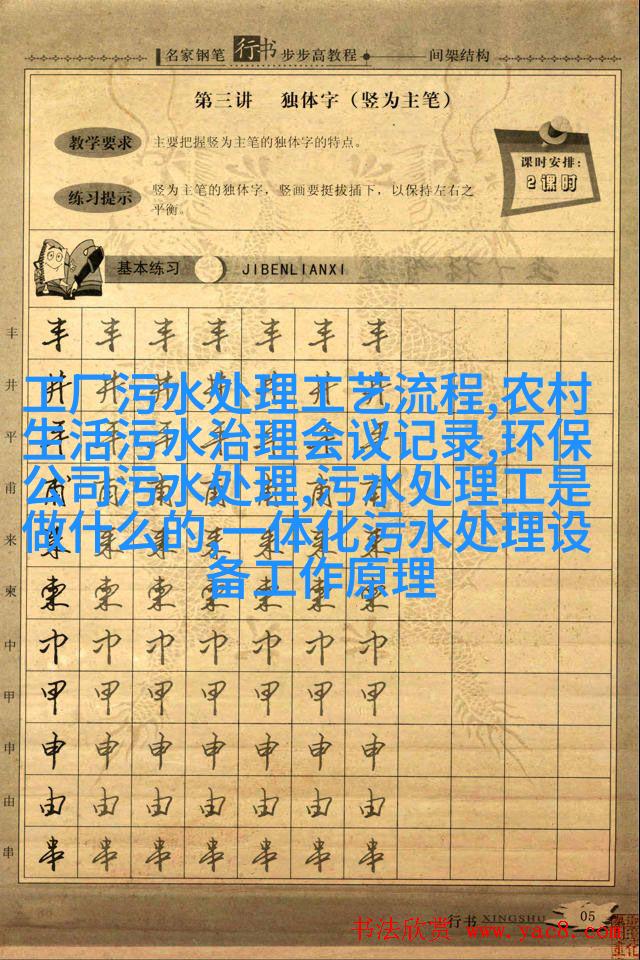 名家钢笔行书步步高教程 间架结构
第三讲 独体字（竖为主笔）
教学要求 主要把握竖为主笔的独体字的特点。
课时安排：
2课时
练习提示 竖为主笔的独体字，竖画要挺拔插下，以保持左右之
平衡。
基本练习 JIBENLIANXI
丰 丰 丰 丰 丰 丰 丰 丰
井 井 井 井 井 井 井 井
工厂污水处理工艺流程,农村
平 平 平 平 平 平 平 平
生活污水治理会议记录,环保
甫 甫 甫 甫 甫 甫 甫 甫
公司污水处理,污水处理工是
来 来 来 来 来 来 来 来
做什么的,一体化污水处理设
柬 柬 柬 柬 柬 柬 柬 柬
备工作原理
中 中 中 中 中 中 中 中
甲 甲 甲 甲 甲 甲 甲 甲
申 申 申 申 申 申 申 申
由 由 由 由 由 由 由 由
串 串 串 串 串 串 串 串
行书 XINGSHU 05
书法欣赏 www.yac8.com